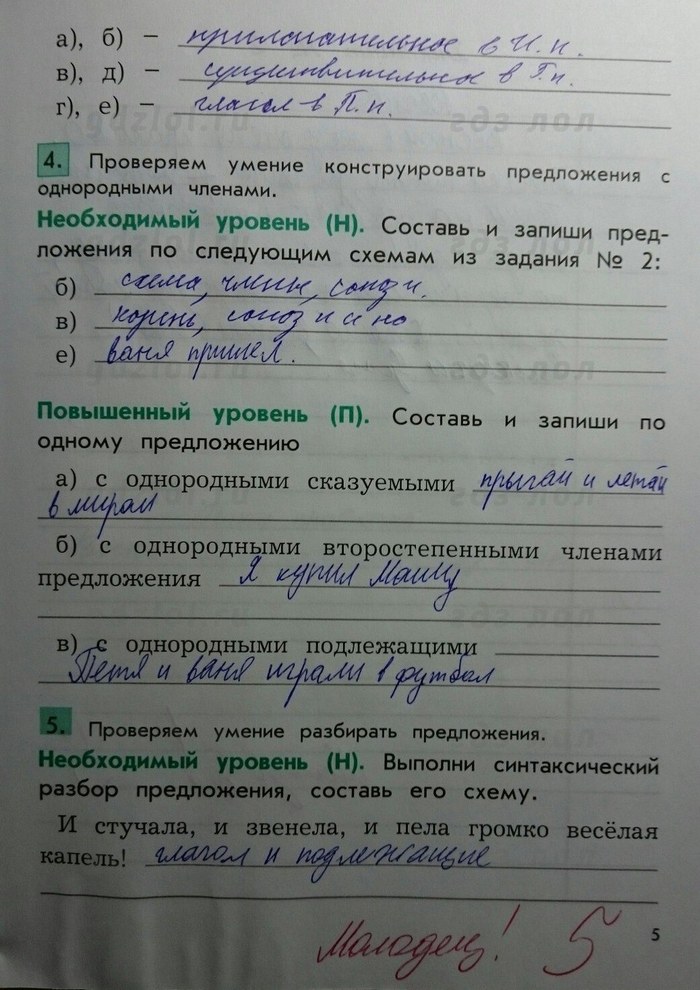 а), б) – прилагательное в И. п.
в), д) – существительное в Т.п.
г), е) – глагол в П.п.
4. Проверяем умение конструировать предложения с
однородными членами.
Необходимый уровень (Н). Составь и запиши пред-
ложения по следующим схемам из задания № 2:
б) схема, члены, союз и.
в) корень, союз и и но
е) ваня пришел.
Повышенный уровень (П). Составь и запиши по
одному предложению
а) с однородными сказуемыми прыгай и летай
в
б) с однородными второстепенными членами
предложения Я купил Машу
в) с однородными подлежащими
Петя и ваня играли в футбол
5. Проверяем умение разбирать предложения.
Необходимый уровень (Н). Выполни синтаксический
разбор предложения, составь его схему.
И стучала, и звенела, и пела громко весёлая
капель! глагол и подлежащие
5
Молодец! 5